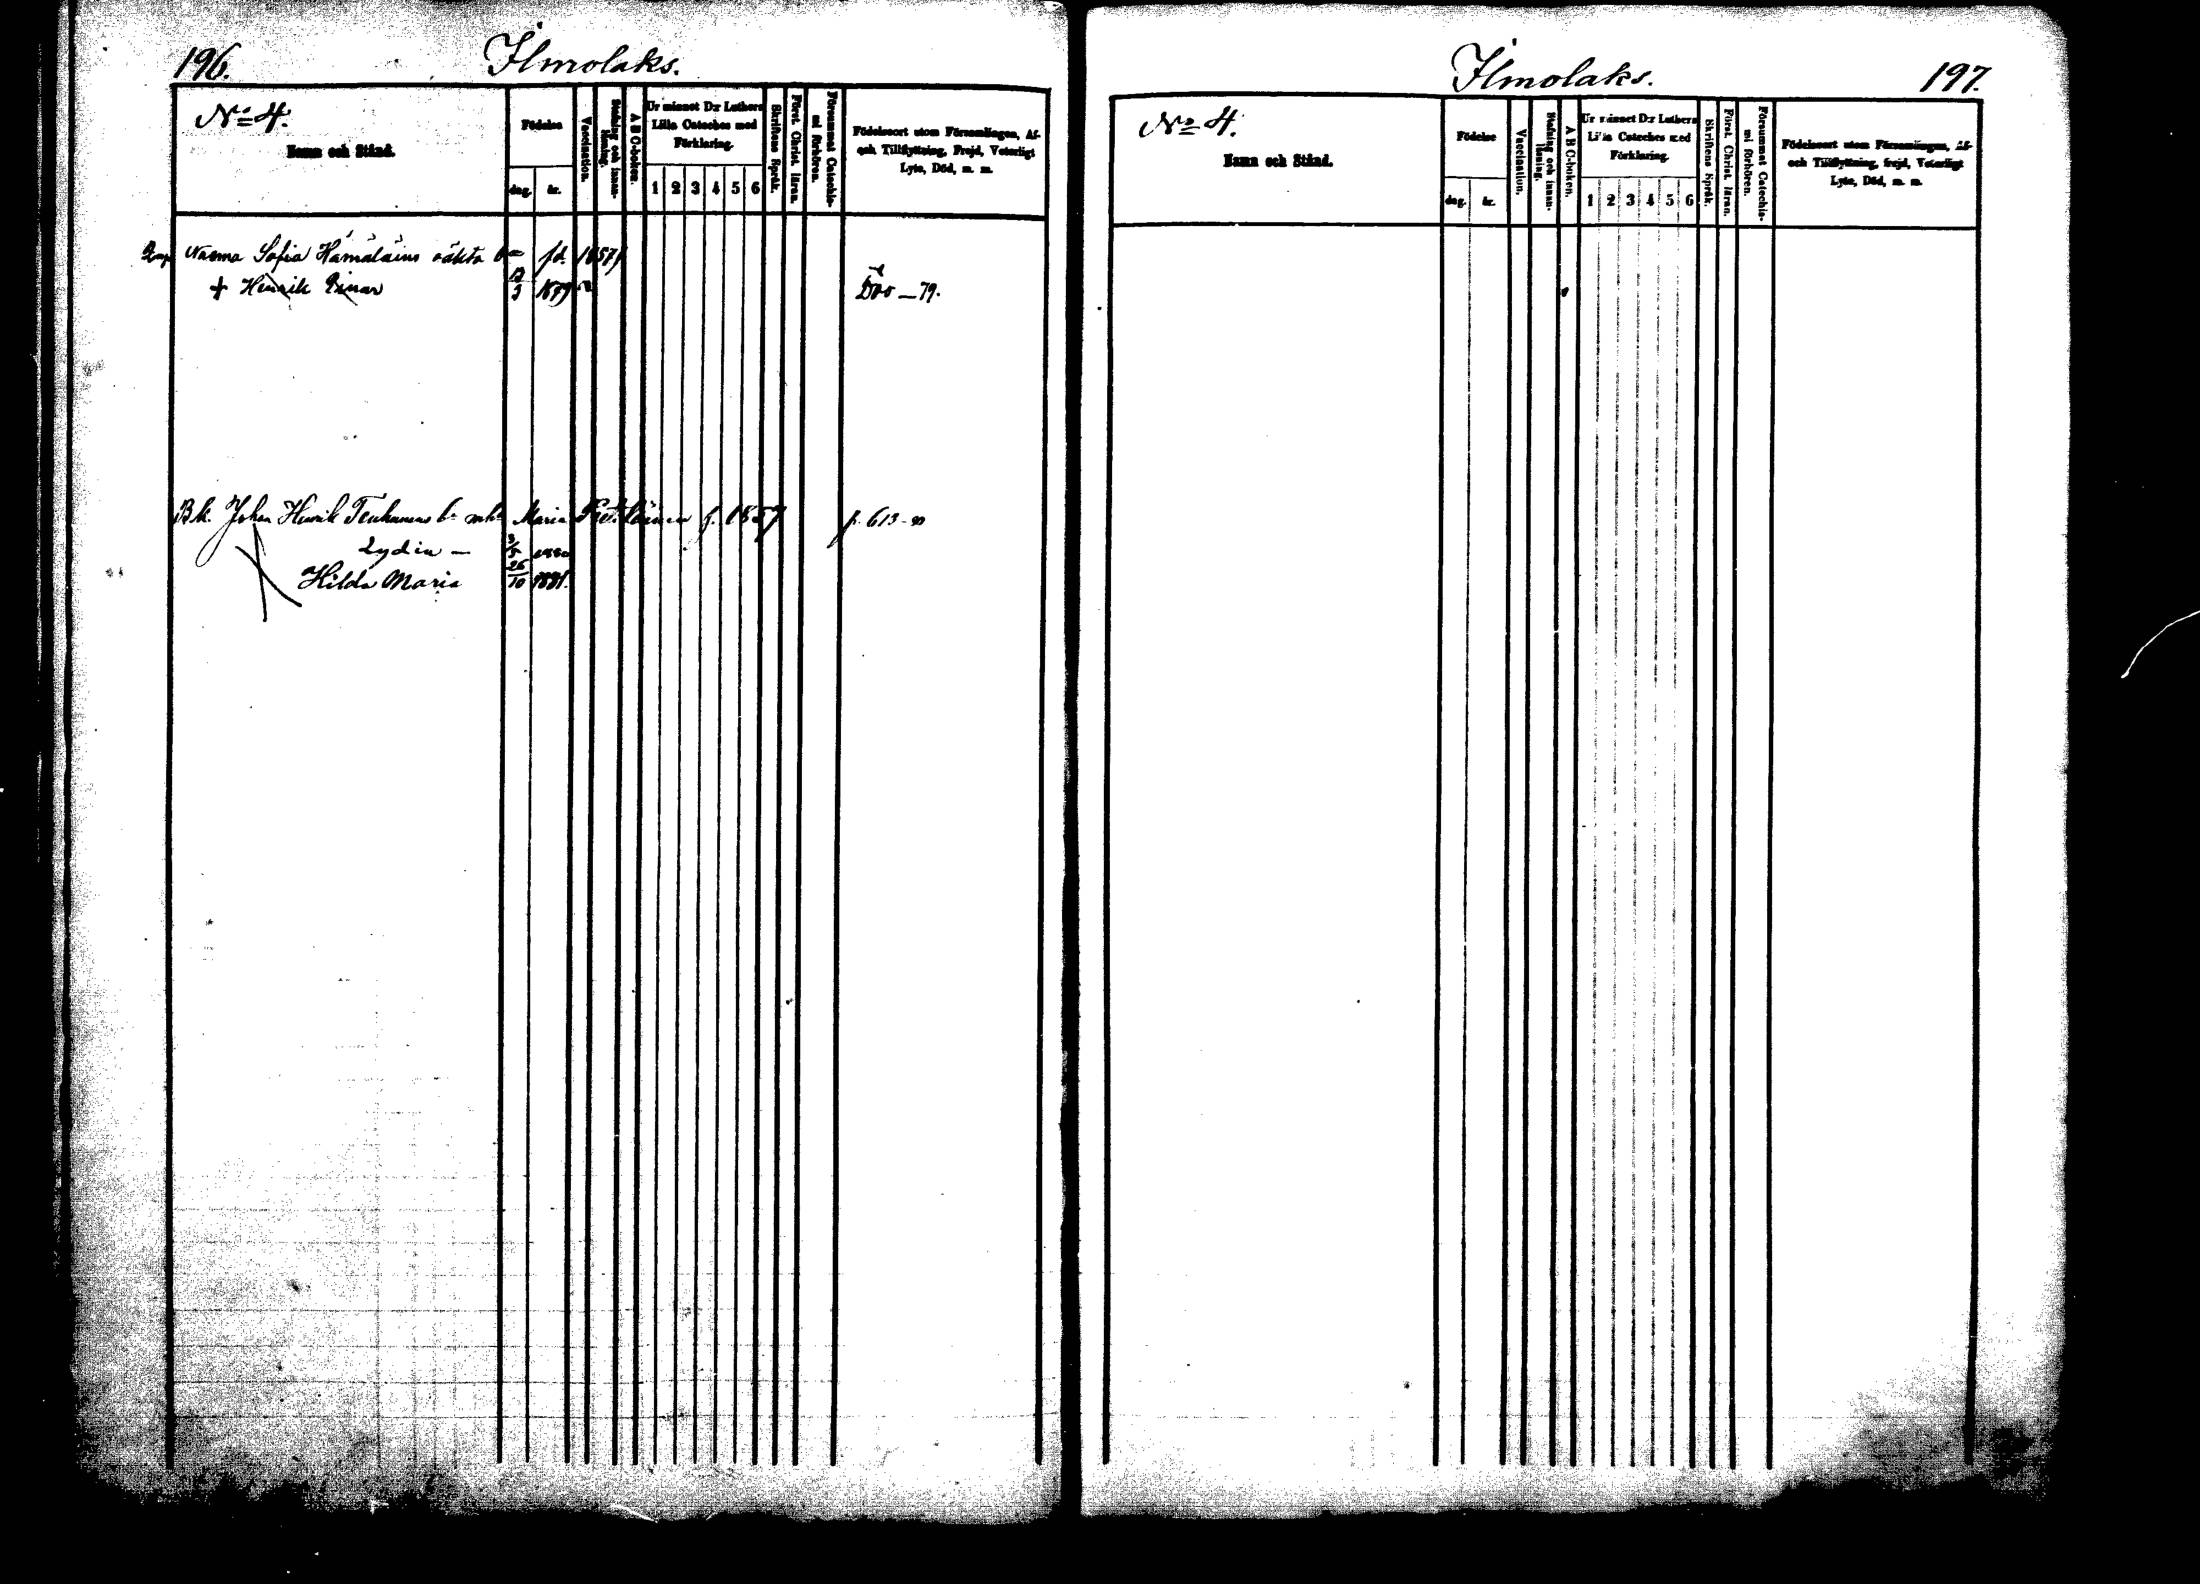 196. Ilmolaks.
No 4.
Namn och Stånd.
Födelse
dag. år.
Vaccination.
Stafning och innan-
läsning.
A B C-boken.
Ur minnet D:r Luthers
Lilla Cateches med
Förklaring.
1 2 3 4 5 6
Skriftens Språk.
Först. Christ. läran.
Försummat Catechis-
mi förhören.
Födelseort utom Församlingen, Af-
och Tillflyttning, Frejd, Veterligt
Lyte, Död, m. m.
Sofia Hämäläins oäkta f.d. 1857
+ Henrik Einar 3 1879 Döo – 79.
Bk. Johan Henrik Tenhunens Maria f. 1857 p. 613
Lydia –
Hilda Maria 26/10 1881.
Ilmolaks. 197.
No 4.
Namn och Stånd.
Födelse
dag. år.
Vaccination.
Stafning och innan-
läsning.
A B C-boken.
Ur minnet D:r Luthers
Lilla Cateches med
Förklaring.
1 2 3 4 5 6
Skriftens Språk.
Först. Christ. läran.
Försummat Catechis-
mi förhören.
Födelseort utom Församlingen, Af-
och Tillflyttning, frejd, Veterligt
Lyte, Död, m. m.